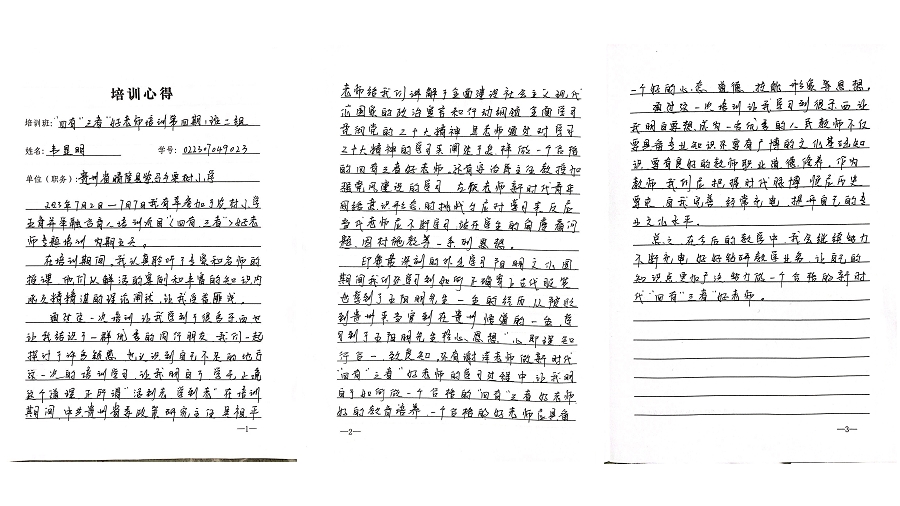 培训心得
培训班：“四有”“三者”好老师培训第四期1班二组
姓名：韦显明 学号：022307049023
单位（职务）：贵州省晴隆县紫马乡栗树小学
2023年7月2日—7月7日我有幸参加了农村小学
五育并举融合育人培训项目《四有、三者》好老
师专题培训，为期五天。
在培训期间，我认真聆听了专家和名师的
授课，他们以鲜活的案例和丰富的知识内
涵及精湛的理论阐述，让我受益匪浅。
通过这一次培训让我学到了很多东西也
让我结识了一群优秀的同行朋友，我们一起
探讨了许多疑惑，也认识到自己不足的地方
这一次的培训学习，让我明白了学无止境
这个道理，正所谓“活到老，学到老”在培训
期间，中共贵州省委政策研究主任
—1—
老师给我们讲解了全面建设社会主义现代
化国家的政治宣言和行动纲领，全面学习
党的二十大精神，老师通过对学习
二十大精神的学习，阐述了怎样做一个合格
的四有三者好老师，还有 主任教授加
强党风建设的学习，
网络意识形态的挑战与应对学习其反应
当代老师应不断学习站在学生的角度看问
题，因材施教等一系列思想。
印象最深刻的外出学习阳明文化园
期间我们不仅学习到如何正确穿了古代服装
也学到了王阳明先生一生的经历从被贬
到贵州 到在贵州悟道的一生，学
习到了王阳明先生核心思想“心即理知
行合一、致良知，还有谢 老师做新时代
“四有”“三者”好老师的学习过程中，让我明
白了如何做一个合格的“四有”“三者”好老
师的教育培养，一个合格的好老师应具备
—2—
一个好的心态、道德、技能、形象等思想。
通过这一次培训让我学习到很多，也让
我明白要想成为一名优秀的人民教师不仅
要具备专业知识还要有广博的文化基础知
识，要有良好的教师职业道德修养，作为
教师，我们应把握时代脉搏，顺应历史
要求，自我完善，经常充电，提升自己的专
业文化水平。
总之，在今后的教学中，我会继续努力
不断充电，好好钻研教学业务，让自己的
知识点更加广泛，努力做一个合格的新时
代“四有”“三者”好老师。
—3—